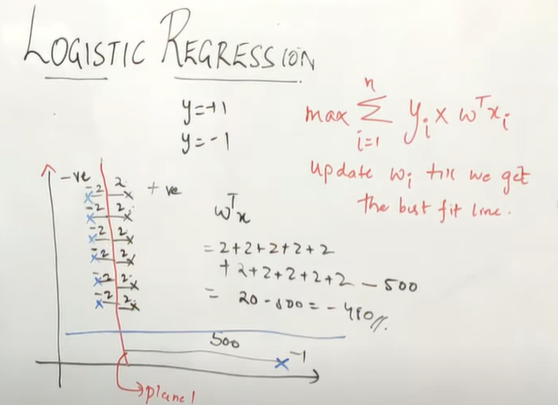 LOGISTIC REGRESSION
y=+1
y=-1
max Σ yᵢ x wᵀxᵢ
n
i=1
update wᵢ till we get
the best fit line.
-ve
+ve
-2 2
-2 2
-2 2
-2 2
-2 2
wᵀx
= 2+2+2+2+2
+ 2+2+2+2+2 - 500
= 20-500 = -480//
500
-1
plane1